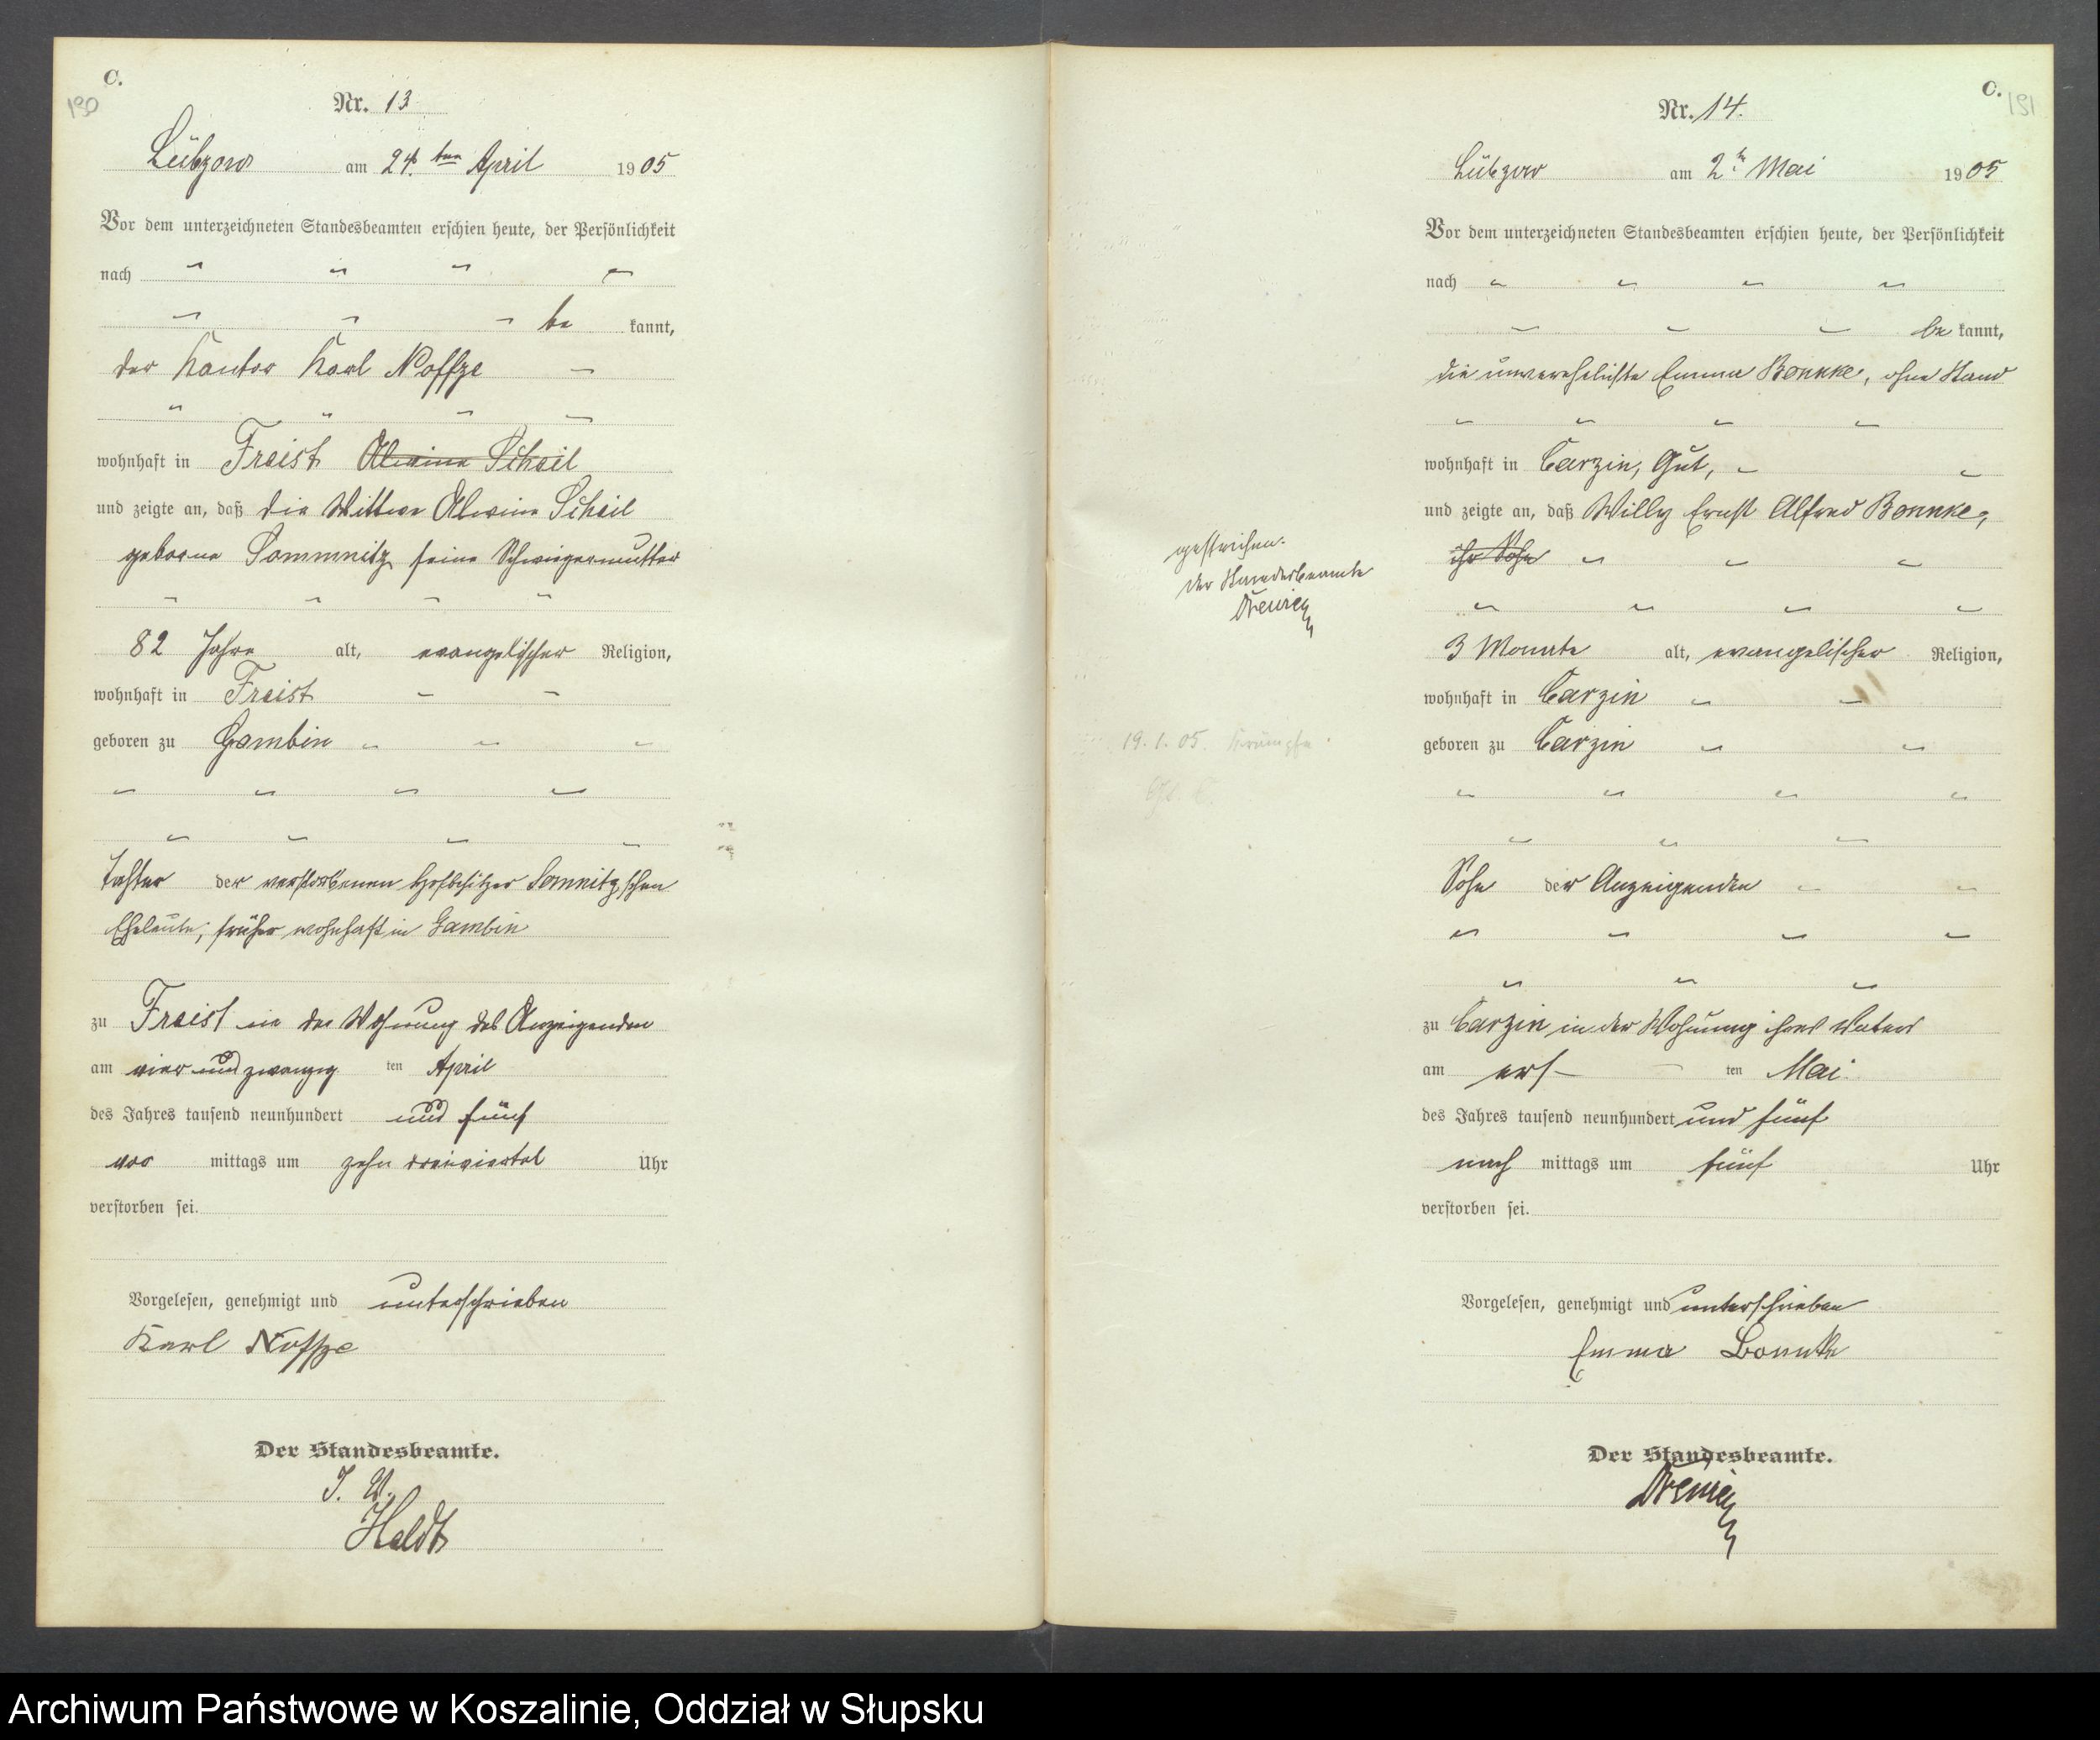 C.
190
Nr. 13
Lübzow am 24. ten April 1905
Vor dem unterzeichneten Standesbeamten erschien heute, der Persönlichkeit
nach
be kannt,
der Kantor Karl Noffze
wohnhaft in Freist Alwine Scheil
und zeigte an, daß die Wittwe Alwine Scheil
geborne Sommnitz, seine Schwiegermutter
82 Jahre alt, evangelischer Religion,
wohnhaft in Freist
geboren zu Gambin
Tochter der verstorbenen Hofbesitzer Somnitz'schen
Eheleute, früher wohnhaft in Gambin
zu Freist in der Wohnung des Anzeigenden
am vier und zwanzig ten April
des Jahres tausend neunhundert und fünf
vor mittags um zehn dreiviertel Uhr
verstorben sei.
Vorgelesen, genehmigt und unterschrieben
Karl Noffze
Der Standesbeamte.
J. V.
Heldt
C.
191
Nr. 14.
Lübzow am 2t. Mai 1905
Vor dem unterzeichneten Standesbeamten erschien heute, der Persönlichkeit
nach
be kannt,
die unverehelichte Emma Bonnke, ohne Stand
wohnhaft in Carzin, Gut,
und zeigte an, daß Willy Ernst Alfred Bonnke,
ihr Sohn
gestrichen.
Der Standesbeamte
3 Monate alt, evangelischer Religion,
wohnhaft in Carzin
geboren zu Carzin
19. 1. 05. Krämpfe
Sohn der Anzeigenden
zu Carzin in der Wohnung ihres Vaters
am ers ten Mai
des Jahres tausend neunhundert und fünf
nach mittags um fünf Uhr
verstorben sei.
Vorgelesen, genehmigt und unterschrieben
Emma Bonnke
Der Standesbeamte.
Archiwum Państwowe w Koszalinie, Oddział w Słupsku